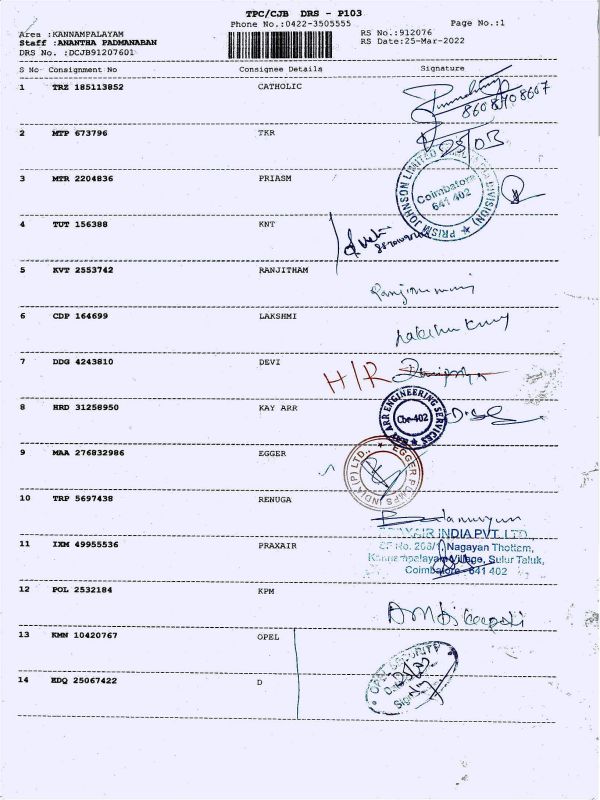 TPC/CJB DRS - P103
Phone No.:0422-3505555 Page No.:1
Area :KANNAMPALAYAM RS No.:912076
Staff :ANANTHA PADMANABAN RS Date:25-Mar-2022
DRS No. :DCJB91207601
S No Consignment No Consignee Details Signature
1 TRZ 185113852 CATHOLIC
8608408667
2 MTP 673796 TKR
25/03
3 MTR 2204836 PRIASM
PRISM JOHNSON LIMITED
Coimbatore
641 402
4 TUT 156388 KNT
5 KVT 2553742 RANJITHAM
6 CDP 164699 LAKSHMI
7 DDG 4243810 DEVI
H/R
8 HRD 31258950 KAY ARR
KAY ARR ENGINEERING SERVICES
Cbe-402
9 MAA 276832986 EGGER
EGGER PUMPS INDIA (P) LTD.,
10 TRP 5697438 RENUGA
PRAXAIR INDIA PVT. LTD.,
11 IXM 49955536 PRAXAIR
Nagayan Thottam,
Kannampalayam Village, Sulur Taluk,
Coimbatore - 641 402
12 POL 2532184 KPM
13 KMN 10420767 OPEL
14 EDQ 25067422 D